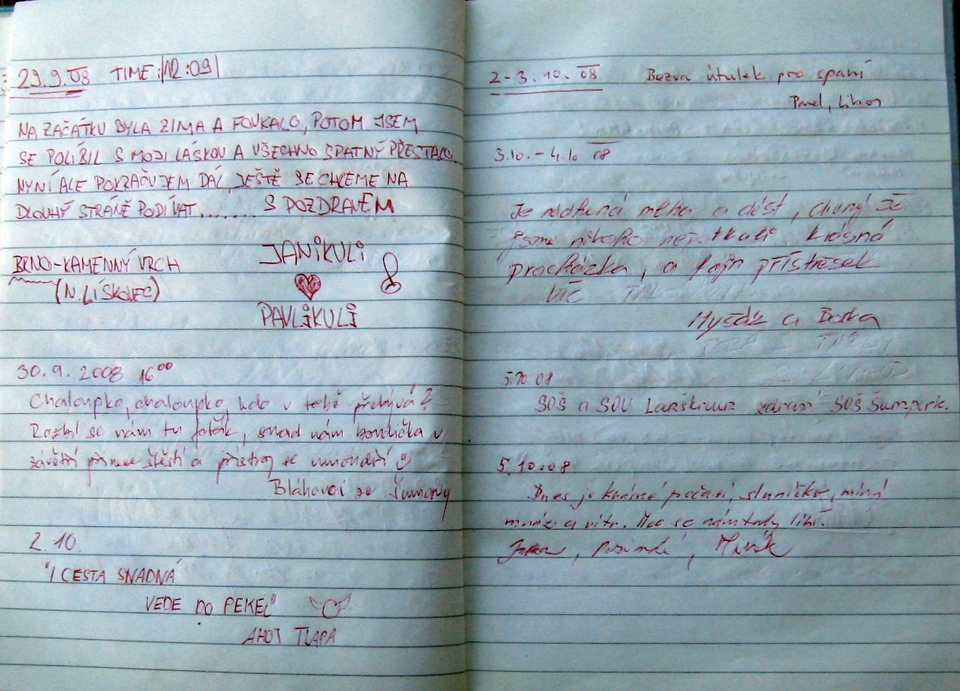 29.9.08 TIME: 12:09
NA ZAČÁTKU BYLA ZIMA A FOUKALO, POTOM JSEM
SE POLÍBIL S MOJI LÁSKOU A VŠECHNO ŠPATNÝ PŘESTALO.
NYNÍ ALE POKRAČUJEM DÁL, JEŠTĚ SE CHCEME NA
DLOUHÝ STRÁNĚ PODÍVAT....... S POZDRAVEM
JANiKULi
BRNO-KAMENNÝ VRCH
(N. LÍSKOVEC)
PAVLiKULi
30.9.2008 16⁰⁰
Chaloupko, chaloupko, kdo v tobě přebývá?
Rozbil se nám tu foťák, snad nám boudička v
závětří přinese štěstí a přístroj se umoudří
Bláhovci ze Šumavy
2.10.
"I CESTA SNADNÁ
VEDE DO PEKEL"
AHOJ TLAPA
2-3.10.08 Bezva útulek pro spaní
Pavel, Libor
3.10.-4.10 08
Je nádherná mlha a déšť, že
jsme nikoho nepotkali, krásná
procházka, a fajn přístřešek
víc
a Borka
5.10 08
SOŠ a SOU Lanškroun zdraví SOŠ Šumperk.
5.10.08
Dnes je krásné počasí, sluníčko, mírný
a vítr. Moc se nám tady líbí.